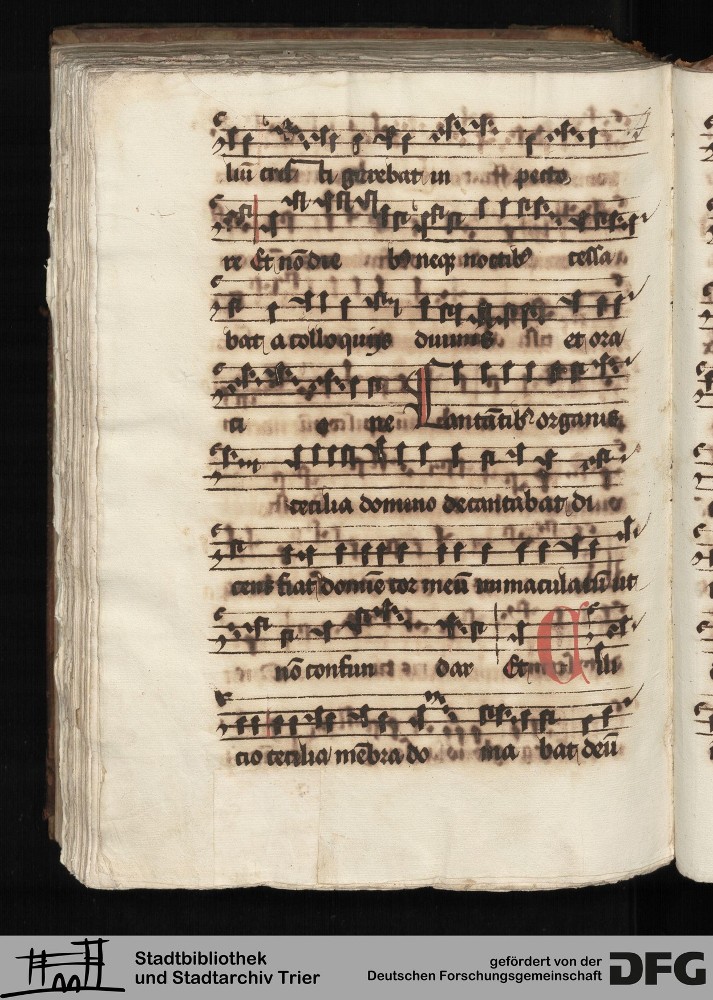 liū cristi gerebat in pecto
re Et nō die bꝰ neqꝫ noctibꝰ cessa
bat a colloquijs diuinis et ora
ci o ne Cantātibꝰ organis
cecilia domino decantabat di
cens fiat domīe cor meū immaculatū ut
nō confun dar Et Cili
cio cecilia mēbra do ma bat deū
Stadtbibliothek
und Stadtarchiv Trier
gefördert von der
Deutschen Forschungsgemeinschaft
DFG